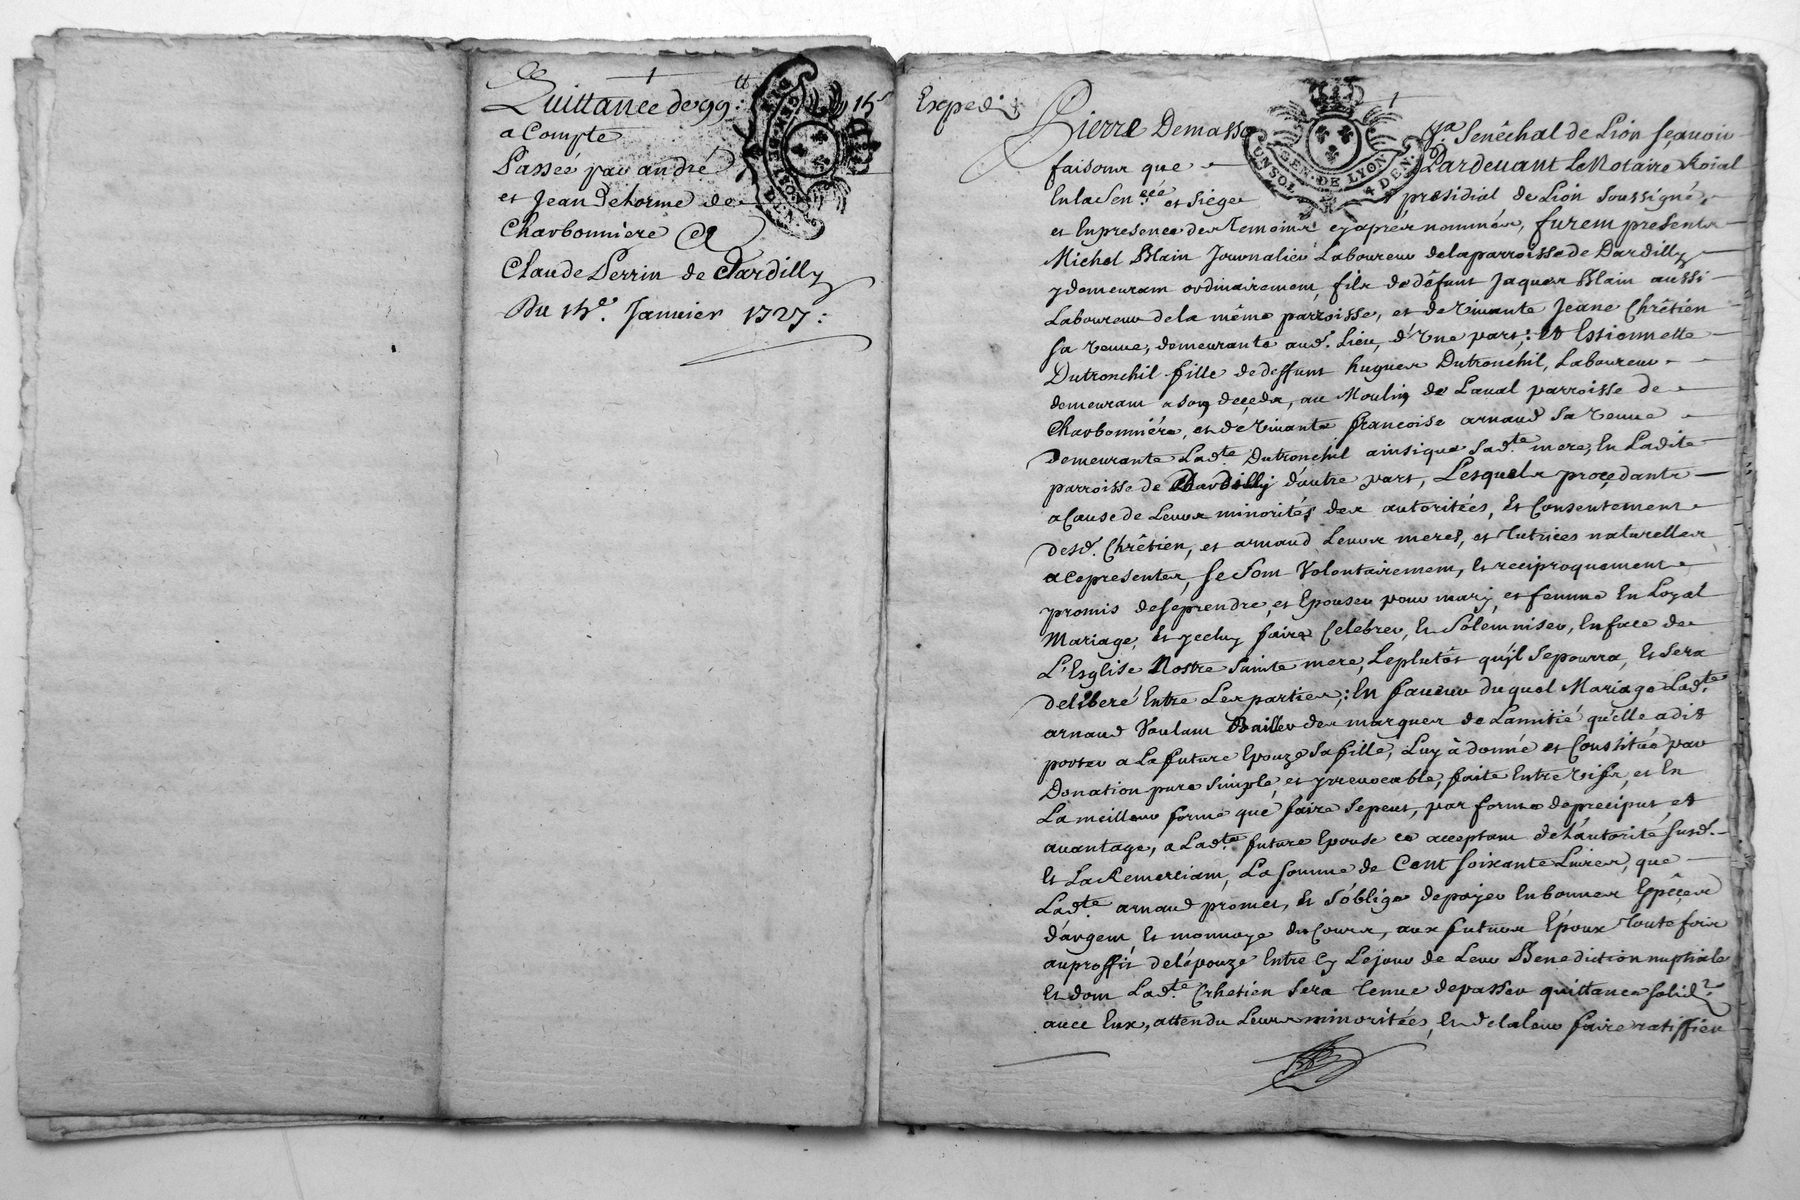 Quittance de 99 tt 15 s
a Compte
Passée par andré
et Jean Delorme de
Charbonniere Et
Claude Perrin de dardilly
Du 15e. Janvier 1727:
GEN. DE LYON
Exped.
Pierre Demasso Senêchal de Lión sçavoir
faisons que Pardevant Le Notaire Roial
En la Sen.ée et Siege presidial de Lión Soussigné,
et En presence des Temoins cy apres nommés, furent presents
Michel Blain Journalier Laboureur de la parroisse de Dardilly
y demeurant ordinairement, fils de défunt Jaques Blain aussi
Laboureur de la même parroisse, et de vivante Jeane Chrêtien
sa veuve, demeurante aud. Lieu, d'une part; Et Estionnette
Dutronchil fille de deffunt hugues Dutronchil, Laboureur
demeurant a son deçeds, au Moulin de Laval parroisse de
Charbonniére, et de vivante francoise arnaud sa veuve
Demeurante Lad.te Dutronchil ainsique sad.te mere, En Ladite
parroisse de Dardilly d'autre part, Lesquels proçedants
a Cause de Leurs minorités des autoritées, Et Consentement
desd. Chrêtien, et arnaud Leurs meres, et Tutrices naturelles
a ce presentes, se sont Volontairement, Et reciproquement
promis de se prendre, et Epouser pour mary, et femme En Loyal
Mariage, Et yceluy faire Celebrer, Et Solemniser, En face de
L'Esglise Nostre Sainte mere, Le plutôt qu'jl se pourra, Et sera
deliberé Entre Les parties; En faveur du quel Mariage Lad.te
arnaud Voulant Bailler des marques de Lamitié qu'elle a dit
porter a La future Epouze sa fille, Luy à donné et Constitué par
Donation pure simple, et yrrevocable, faite Entre vifs, et En
La meilleur forme que faire se peut, par forme de preciput, et
avantage, a Lad.te future Epouse ce acceptant de L'autorité susd.
Et La Remerciant, La somme de Cent soixante Livres, que
Lad.te arnaud promet, Et s'oblige de payer En bonnes Espéces
d'argent, Et monnoye du Cours, aux futurs Epoux Toute fois
au proffit de L'épouze Entre Cy Le jour de Leur Benediction nuptiale
Et dont Lad.te Crhetien sera Tenue de passer quittance solid.re
avec Eux, attendu Leurs minoritées, Et de La leur faire ratiffier